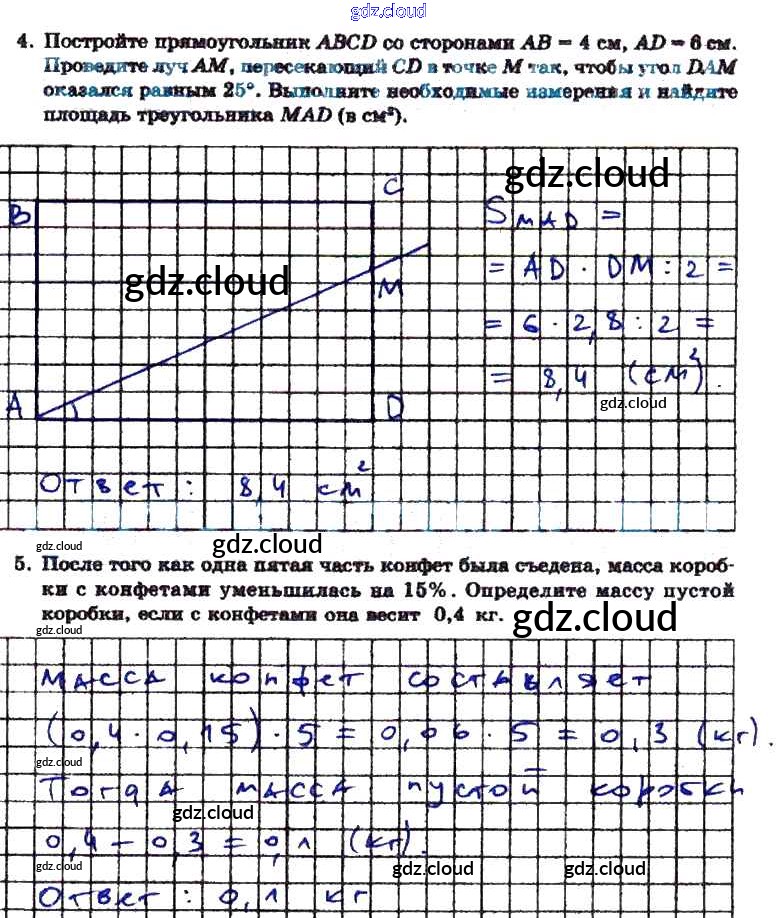 gdz.cloud
4. Постройте прямоугольник ABCD со сторонами AB = 4 см, AD = 6 см.
Проведите луч AM, пересекающий CD в точке M так, чтобы угол DAM
оказался равным 25°. Выполните необходимые измерения и найдите
площадь треугольника MAD (в см²).
gdz.cloud
B
C
S MAD =
gdz.cloud
M
= AD · DM : 2 =
= 6 · 2,8 : 2 =
= 8,4 (см²).
gdz.cloud
A
D
Ответ: 8,4 см²
gdz.cloud
gdz.cloud
5. После того как одна пятая часть конфет была съедена, масса короб-
ки с конфетами уменьшилась на 15%. Определите массу пустой
коробки, если с конфетами она весит 0,4 кг.
gdz.cloud
gdz.cloud
Масса конфет составляет
(0,4 · 0,15) · 5 = 0,06 · 5 = 0,3 (кг).
gdz.cloud
Тогда масса пустой коробки
gdz.cloud
0,4 – 0,3 = 0,1 (кг).
gdz.cloud
gdz.cloud
gdz.cloud
Ответ: 0,1 кг